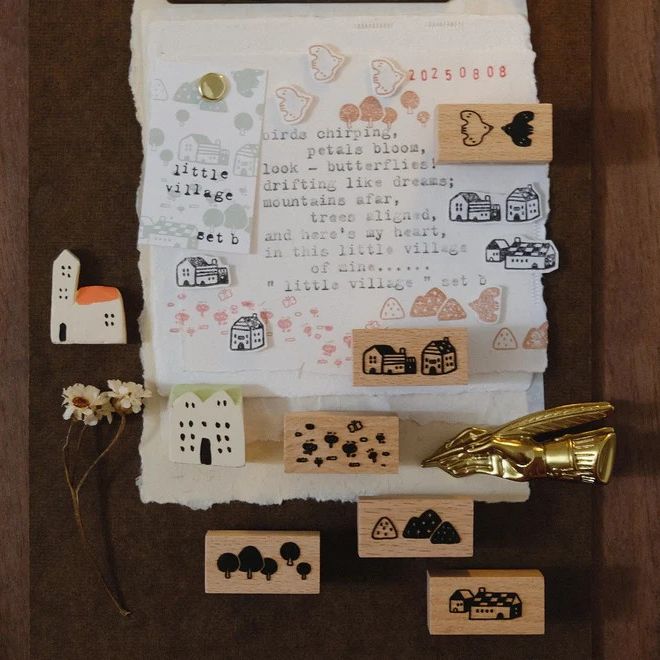 20250808
little
village
set b
birds chirping,
petals bloom,
look — butterflies!
drifting like dreams;
mountains afar,
trees aligned,
and here's my heart,
in this little village
of mine......
" little village " set b